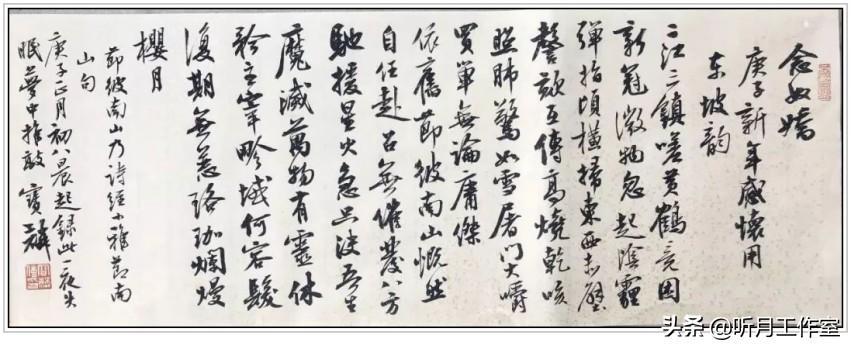 念奴嬌
庚子新年感懷用
东坡韵
二江三鎮嗟黄鶴竟困
新冠微物忽起陰霾
弹指頃橫掃東西赤壁
謦欬互傳高燒乾咳
照肺驚如雪屠門大嚼
買單無論庸傑
依舊節彼南山慨然
自任赴召無催發八方
馳援星火急決吾生
魔滅萬物有靈休
矜主宰畛域何容髮
復期無恙珞珈爛熳
櫻月
節彼南山乃詩經小雅節南
山句
庚子正月初八晨起錄此一夜失
眠夢中推敲 寶麟
头条 @听月工作室